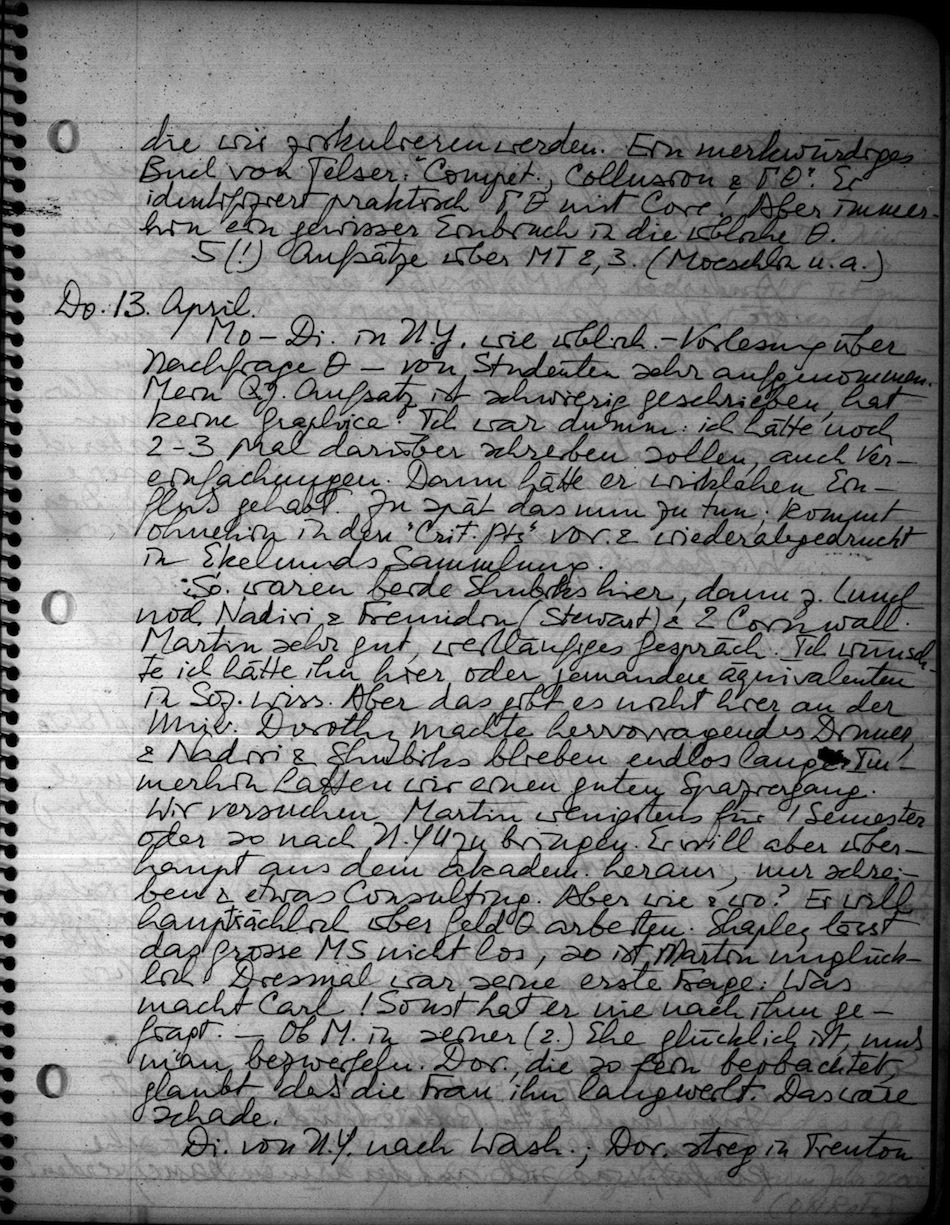 die wir zirkulieren werden. Ein merkwürdiges
Buch von Telser: "Compet., Collusion & Γθ". Er
identifiziert praktisch Γθ mit Core! Aber immer-
hin ein gewisser Einbruch in die übliche θ.
5(!) Aufsätze über MT 2,3. (Moeschlin u.a.)
Do. 13. April.
Mo – Di. in N.Y. wie üblich. – Vorlesung über
Nachfrage θ – von Studenten sehr aufgenommen.
Mein QJ. Aufsatz ist schwierig geschrieben, hat
keine Graphics. Ich war dumm: ich hätte noch
2-3 Mal darüber schreiben sollen, auch Ver-
einfachungen. Dann hätte er wirklichen Ein-
fluß gehabt. Zu spät das nun zu tun; kommt
ohnehin in den "Crit. Pts" vor & wiederabgedruckt
in Ekelunds Sammlung.
So. waren beide Shubiks hier, dann z. Lunch
noch Nadiri & (Stewart) & 2 Cornwall.
Martin sehr gut, weitläufiges Gespräch. Ich wünsch-
te ich hätte ihn hier, oder jemanden äquivalenten
in Soz. wiss. Aber das gibt es nicht hier an der
Univ. Dorothy machte hervorragendes Dinner,
& Nadiri & Shubiks blieben endlos lange. Im-
merhin hatten wir einen guten Spaziergang.
Wir versuchen Martin wenigstens für 1 Semester
oder so nach N.Y.U zu bringen. Er will aber über-
haupt aus dem akadem. heraus, nur schrei-
ben & etwas Consulting. Aber wie & wo? Er will
hauptsächlich über Geld θ arbeiten. Shapley lässt
das grosse MS nicht los, so ist Martin unglück-
lich. Diesmal war seine erste Frage: Was
macht Carl! Sonst hat er nie nach ihm ge-
fragt. – Ob M. in seiner (2.) Ehe glücklich ist, muß
man bezweifeln. Dor., die so fein beobachtet,
glaubt daß die Frau ihn langweilt. Das wäre
schade.
Di. von N.Y. nach Wash.; Dor. stieg in Trenton